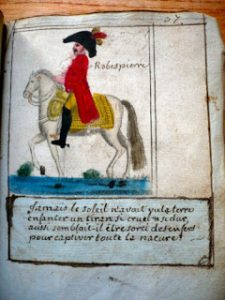 Robespierre
Jamais le soleil n'avait vu la terre
enfanter un tiran si cruel dur,
aussi semblait-il être sorti des enfers
pour captiver toute la nature!